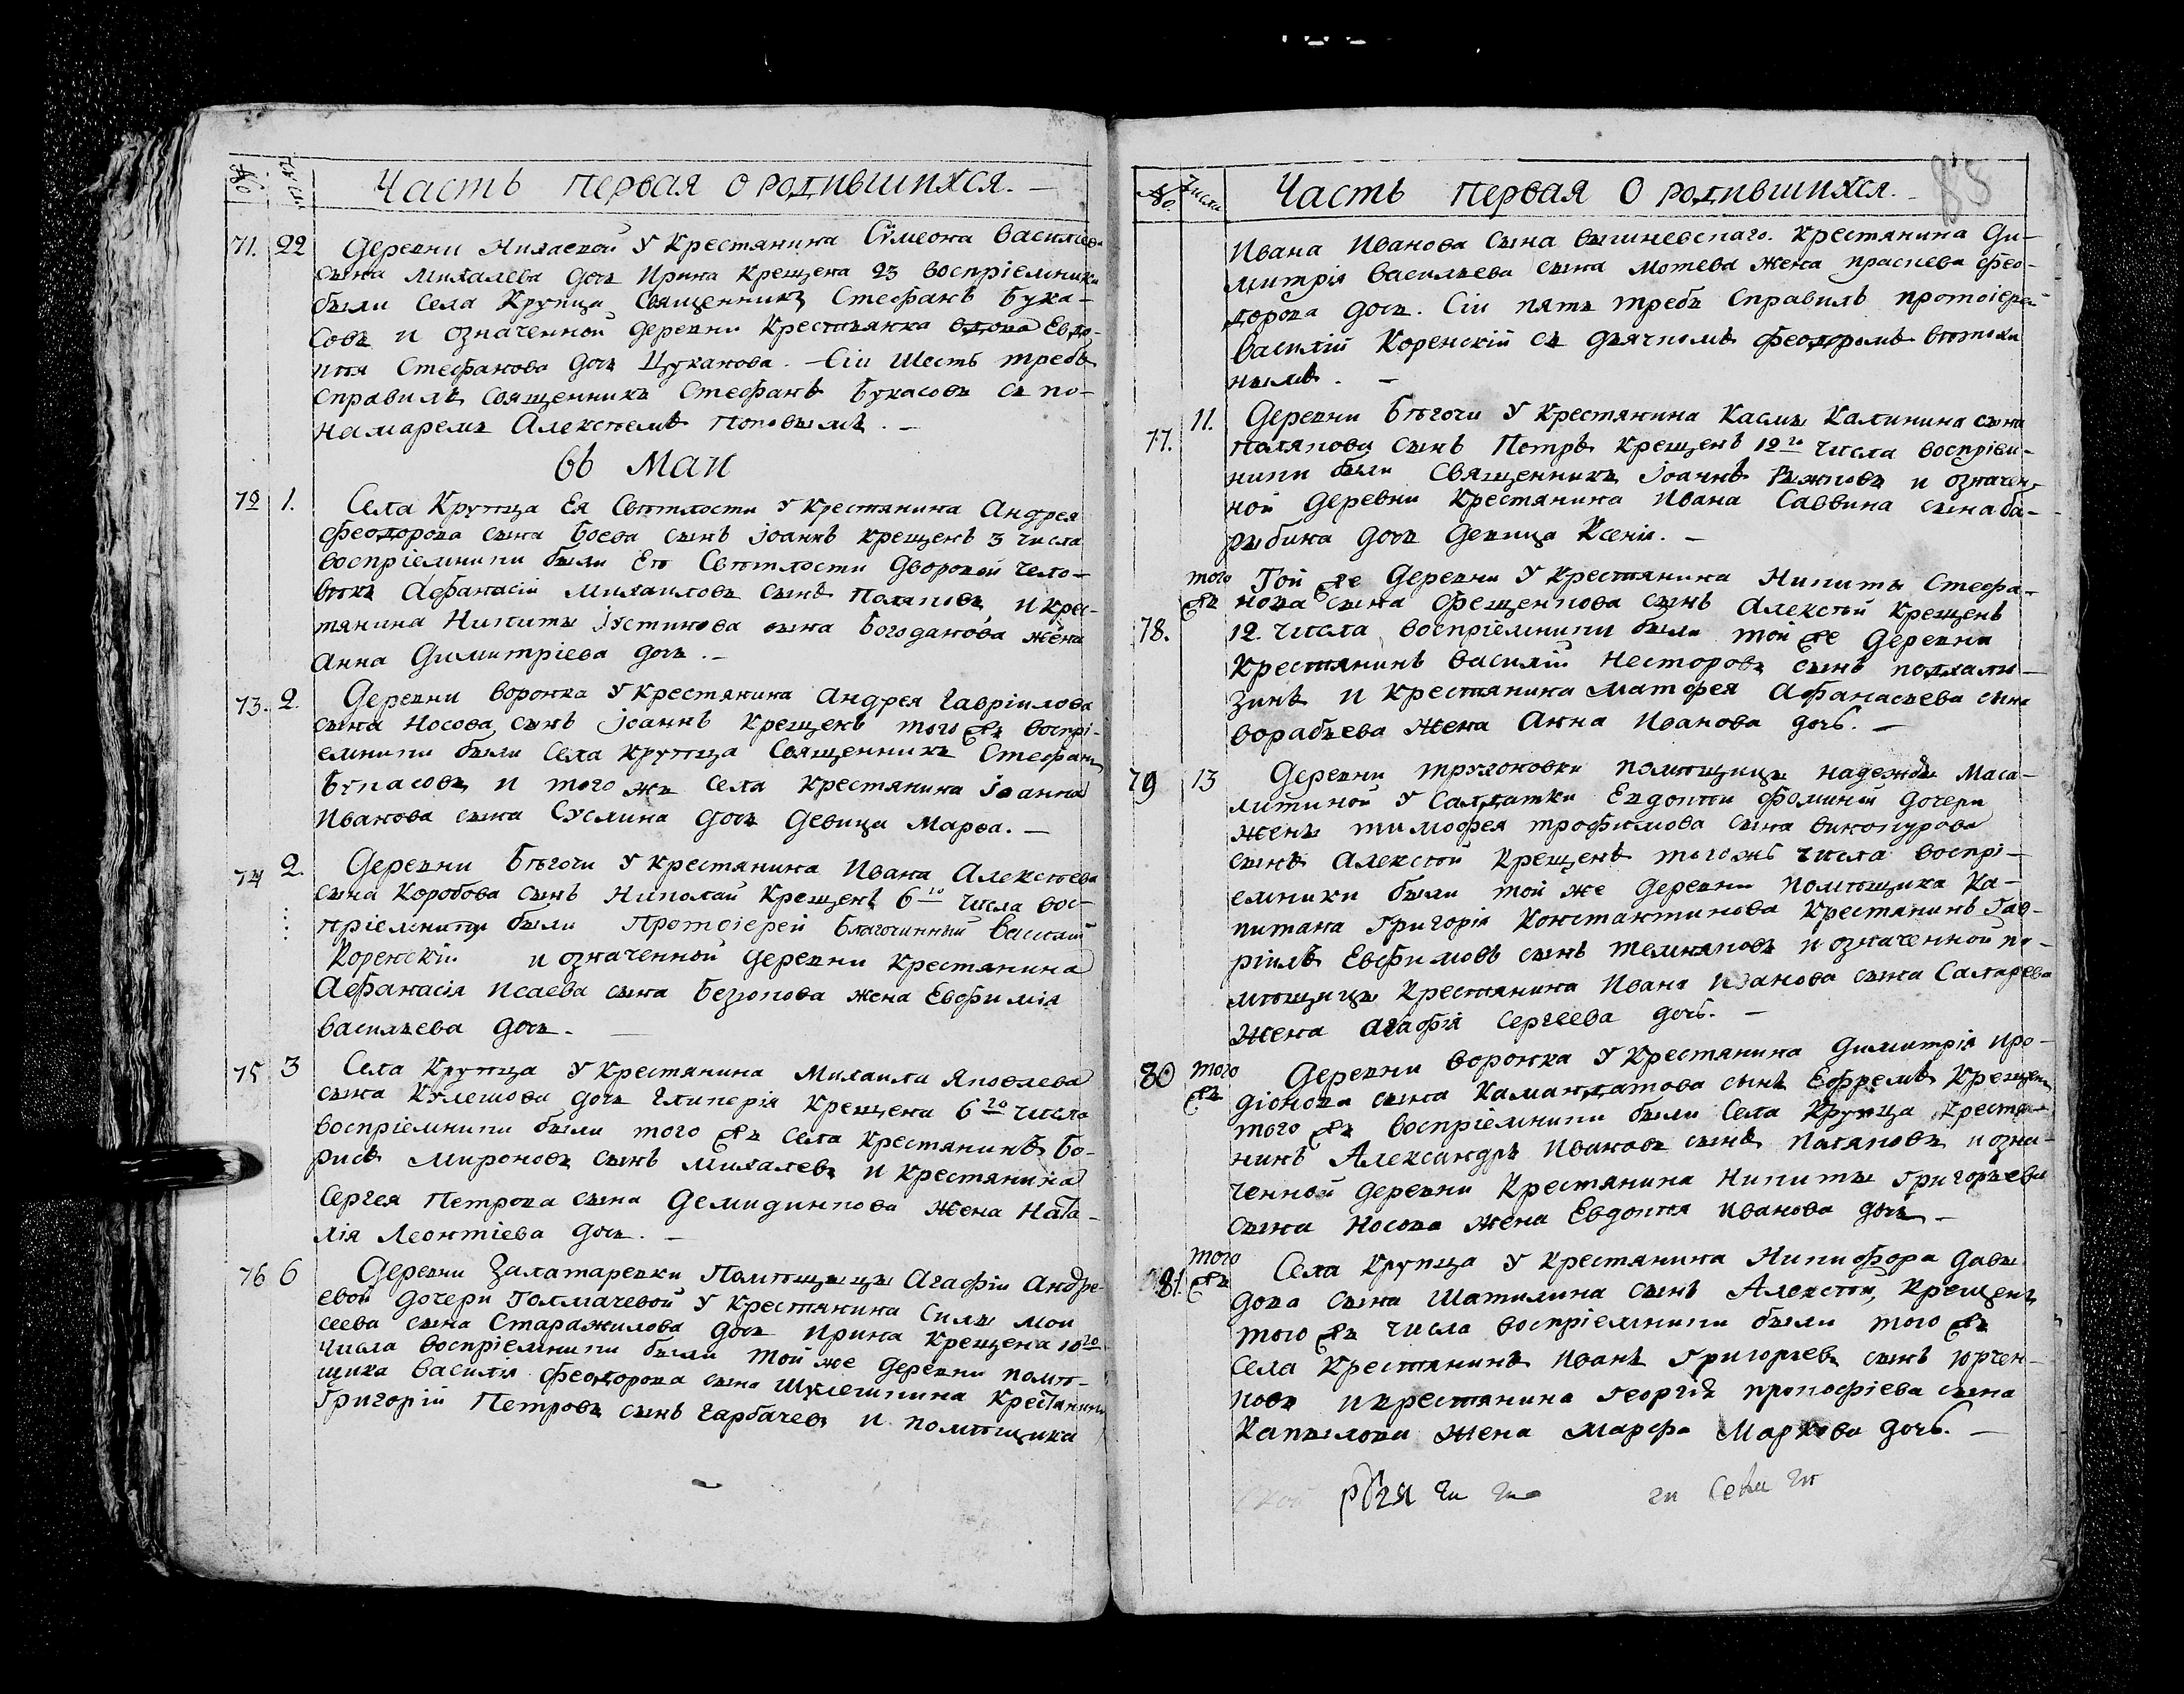 № числ
Часть первая о родившихся. —
71. 22 Деревни Нилаевой у крестянина Сѵмеона Василіева
сына Михалева дочь Ирина крещена 23 воспріемники
были Села Крупца Священникъ Стефанъ Бука-
совъ и означенной деревни крестьянка вдова Евдо-
кѣя Стефанова дочь Цуканова. — Сіи шесть требъ
справилъ священникъ Стефанъ Букасовъ съ по-
намаремъ Алексѣемъ Поповымъ. —
въ Маи
72 1. Села Крупца Ея Свѣтлости у крестянина Андрея
Феодорова сына Боева сынъ Іоаннъ крещенъ 3 числа
воспріемники были Его Свѣтлости дворовой чело-
вѣкъ Афанасій Михаиловъ сынъ Поляковъ и крес-
тянина Никиты Іустинова сына Богоданова жена
Анна Димитріева дочь. —
73. 2. Деревни Воронка у крестянина Андрея Гавріилова
сына Носова сынъ Іоаннъ крещенъ того жъ воспрі-
емники были Села Крупца Священникъ Стефанъ
Букасовъ и того жъ села крестянина Іоанна
Иванова сына Суслина дочь девица Марѳа. —
74 2. Деревни Бѣгочи у крестянина Ивана Алексѣева
сына Коробова сынъ Николай крещенъ 6го числа вос-
пріемники были Протоіерей Благочинный Василій
Коренскій и означенной деревни крестянина
Афанасія Исаева сына Безюкова жена Евфимія
Васильева дочь. —
75 3 Села Крупца у крестянина Михаила Яковлева
сына Кулешова дочь Гликерія крещена 6го числа
воспріемники были того жъ села крестянинъ Бо-
рисъ Мироновъ сынъ Михалевъ и крестянина
Сергея Петрова сына Демидинкова жена Ната-
лія Леонтіева дочь. —
76 6 Деревни Залатаревки Помѣщицы Агафіи Андре-
евой дочери Толмачевой у крестянина Силы Мои
сеева сына Старажилова дочь Ирина крещена 10го
числа воспріемники были той же деревни помѣ-
щика Василія Феодорова сына Шулешкина крестянинъ
Григорій Петровъ сынъ Гарбачевъ и помѣщика
85
№. Числа
Часть первая О родившихся. —
Ивана Иванова сына Вишневскаго. крестянина Ди-
митрія Васильева сына Мотева жена Праскева Фео-
дорова дочь. Сіи пять требъ справилъ протоіерей
Василій Коренскій съ дьячкомъ Феодоромъ
нымъ. —
77. 11. Деревни Бѣгочи у крестянина Касмы Калинина сына
Полякова сынъ Петръ крещенъ 12го числа воспріем-
ники были Священникъ Іоаннъ Рыжковъ и означен-
ной деревни крестянина Ивана Саввина сына Ба-
рыбина дочь девица Ксенія. —
78. того жъ Той же деревни у крестянина Никиты Стефа-
нова сына Фещенкова сынъ Алексѣй крещенъ
12. числа воспріемники были той же деревни
крестянинъ Василій Несторовъ сынъ
зинъ и крестянина Матфея Афанасьева сына
Воробьева жена Анна Иванова дочь. —
79 13 Деревни Трухоновки помѣщицы Надежды Маса-
литиной у салдатки Евдокѣи Фоминой дочери
жены Тимофея Трофимова сына Винокурова
сынъ Алексѣй крещенъ тогожъ числа воспрі-
емники были той же деревни помѣщика Ка-
питана Григорія Константинова крестянинъ Гав-
ріилъ Евфимовъ сынъ Темняковъ и означенной по-
мѣщицы крестянина Ивана Иванова сына Сапарева
жена Агафія Сергеева дочь. —
80 того жъ Деревни Воронка у крестянина Димитрія Иро-
діонова сына Камандатова сынъ Ефремъ крещенъ
того жъ воспріемники были Села Крупца крестя-
нинъ Александръ Ивановъ сынъ Поляковъ и озна-
ченной деревни крестянина Никиты Григорьева
сына Носова жена Евдокѣя Иванова дочь —
81. того жъ Села Крупца у крестянина Никифора Давы
дова сына Шатилина сынъ Алексѣй, крещенъ
того жъ числа воспріемники были того жъ
села крестянинъ Иванъ Григорьевъ сынъ Юрчен-
ковъ и крестянина Георгія Прокофіева сына
Капылова жена Марфа Маркова дочь. —